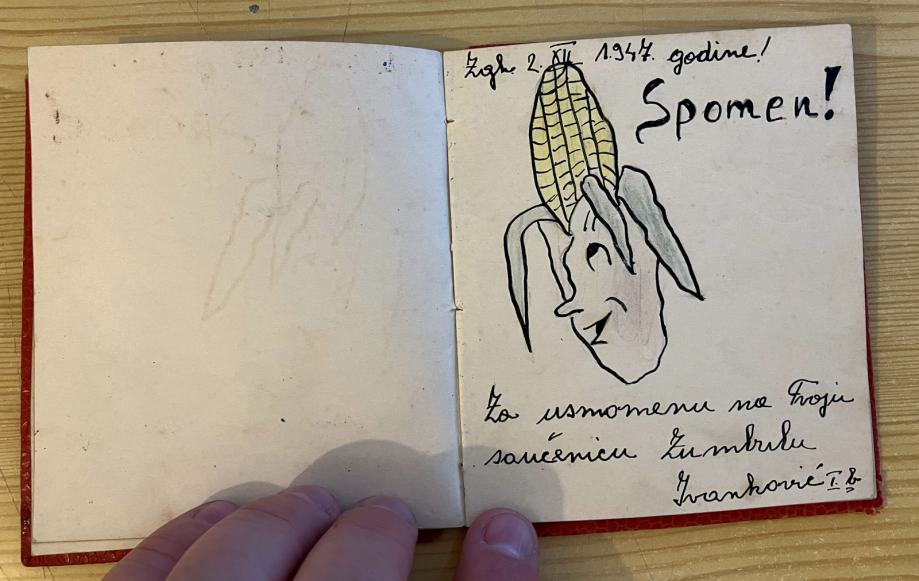 Zgb. 2. XII. 1947. godine!
Spomen!
Za usmomenu na Tvoju
saučenicu Zumbulu
Ivanković I. b